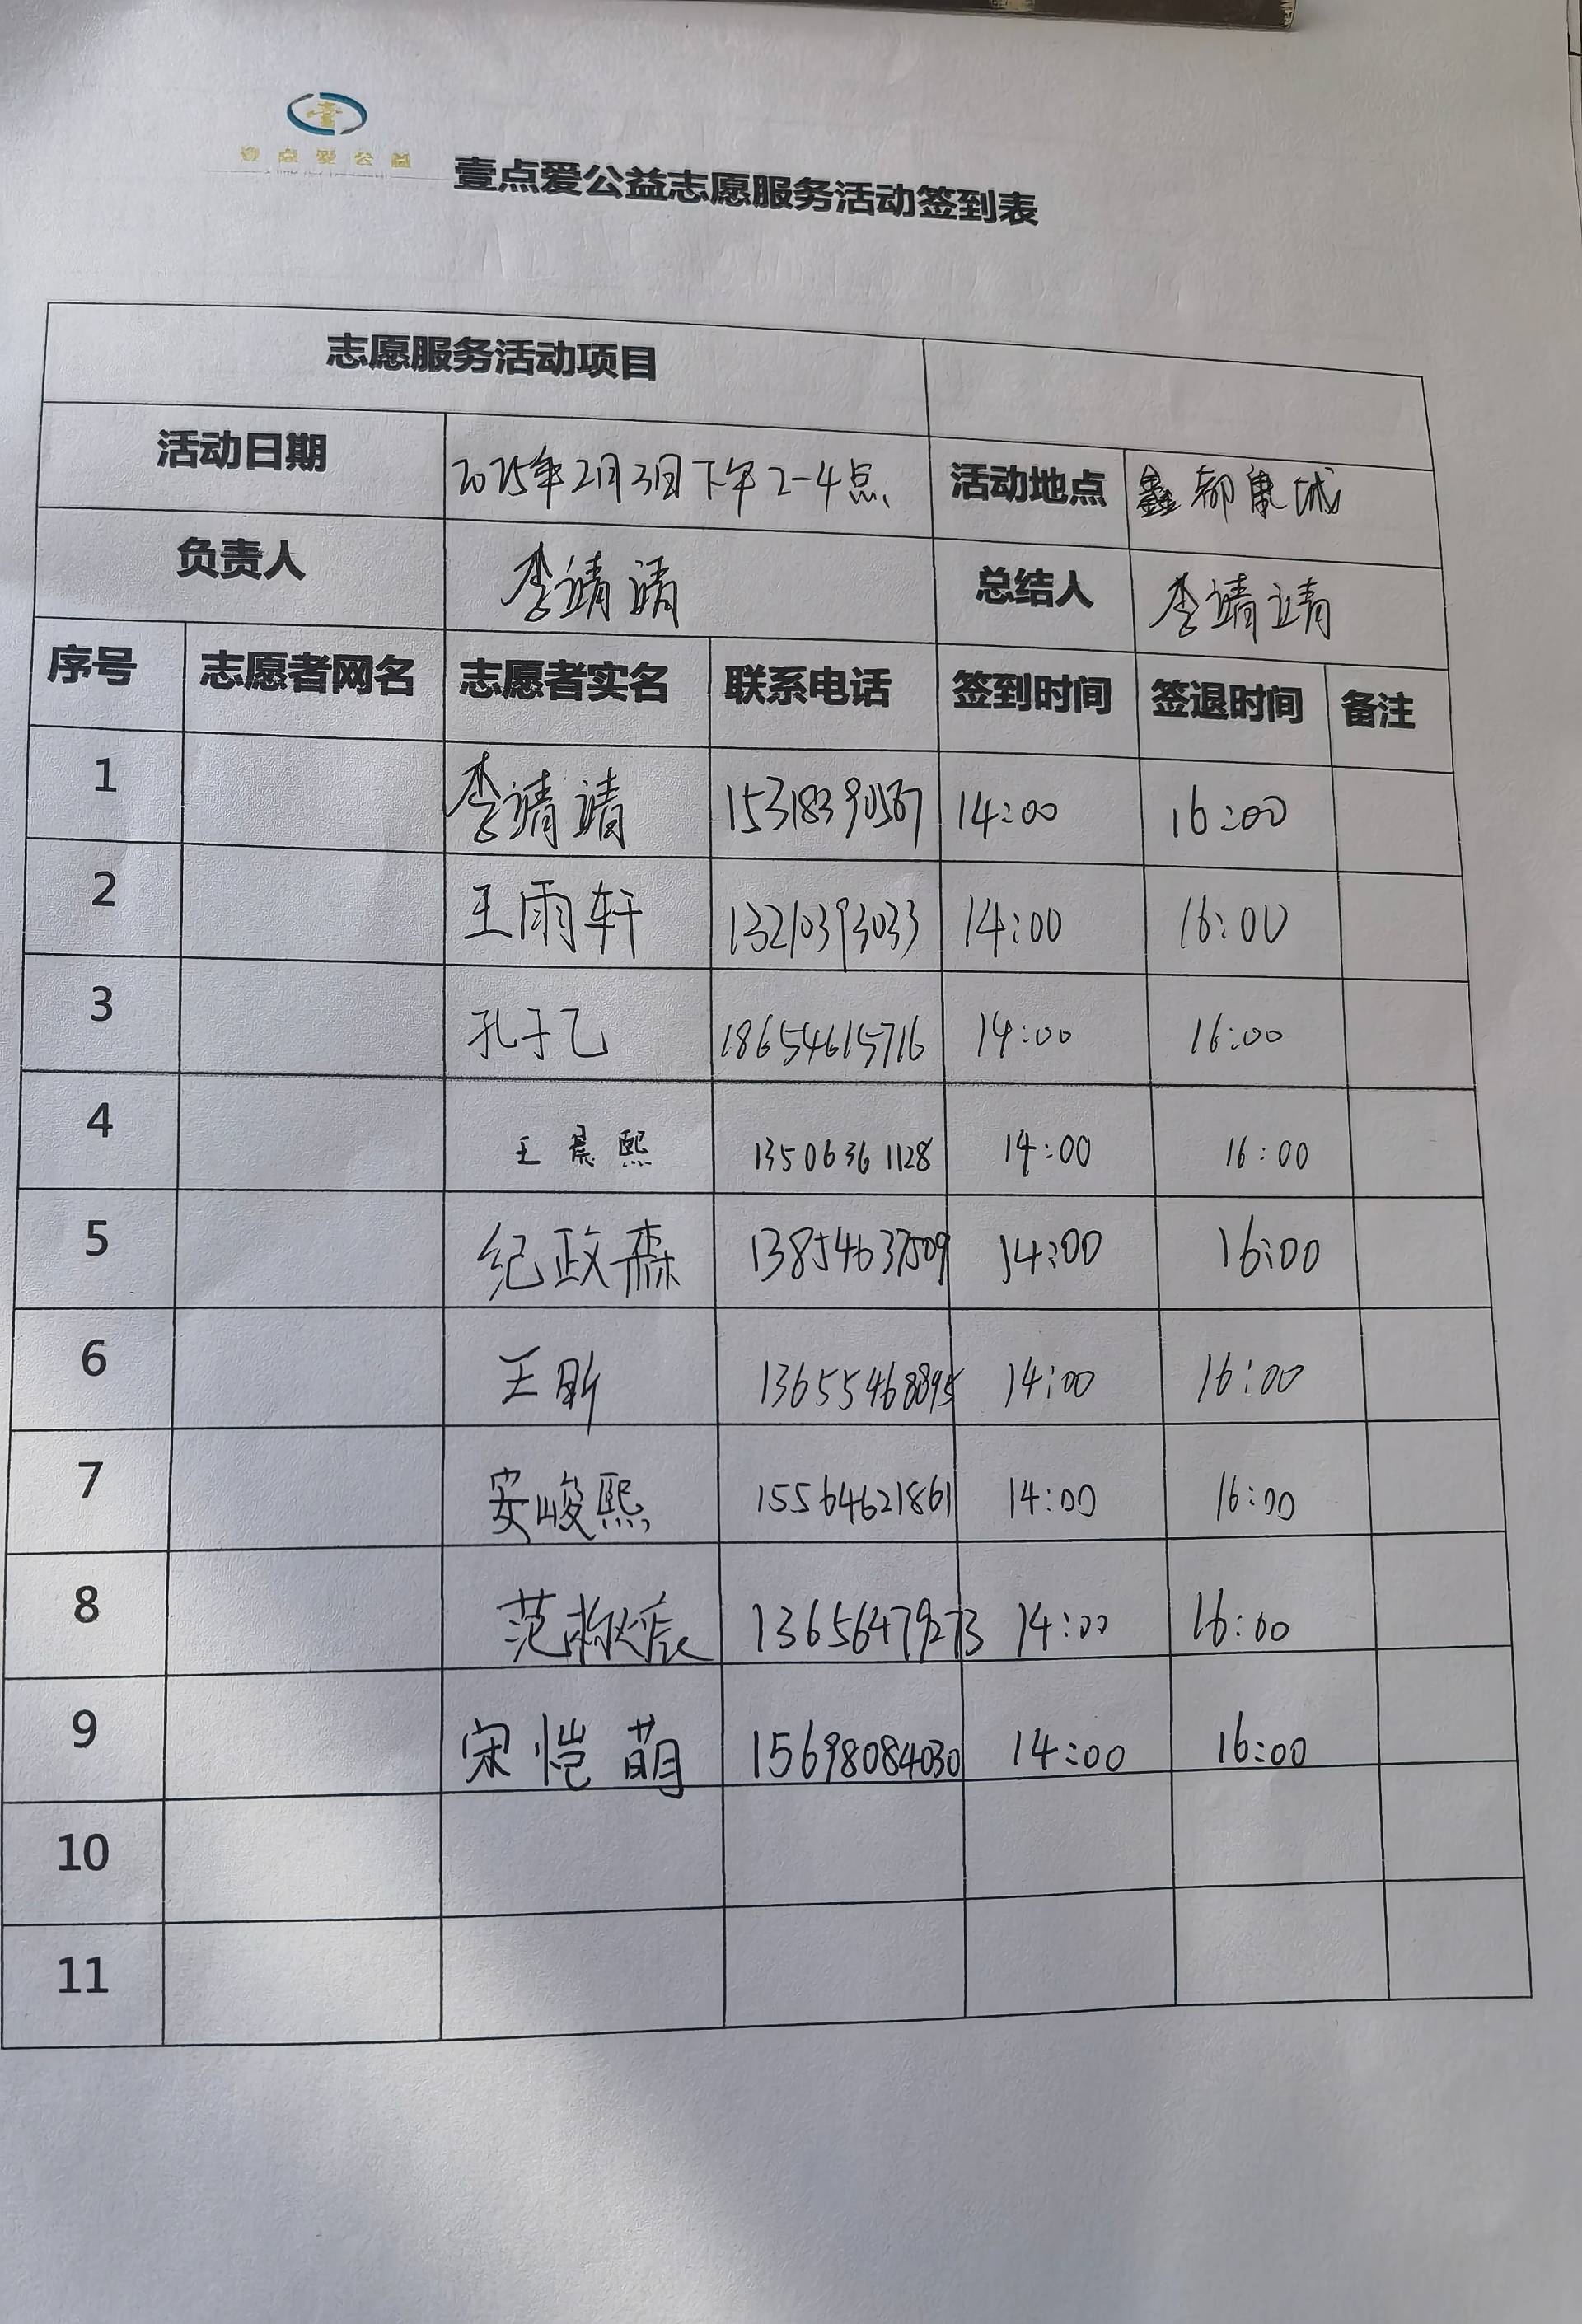 壹点爱公益
壹点爱公益志愿服务活动签到表
志愿服务活动项目
活动日期 2025年2月3日下午2-4点 活动地点 鑫都康城
负责人 李靖靖 总结人 李靖靖
序号 志愿者网名 志愿者实名 联系电话 签到时间 签退时间 备注
1 李靖靖 14:00 16:00
2 王雨轩 13210393033 14:00 16:00
3 孔于乙 18654615716 14:00 16:00
4 王晨熙 13506361128 14:00 16:00
5 纪政霖 13854637509 14:00 16:00
6 王昕 13655468895 14:00 16:00
7 安峻熙 15564621861 14:00 16:00
8 范 13656479273 14:00 16:00
9 宋恺萌 15698084030 14:00 16:00
10
11